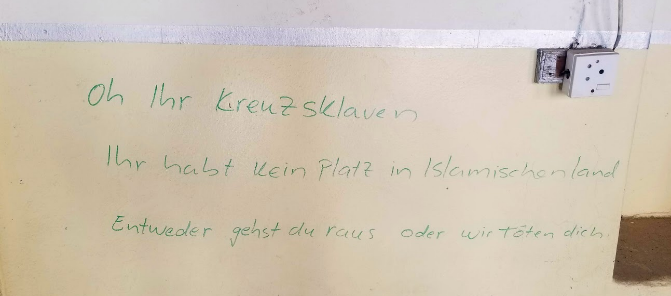 Oh Ihr Kreuzsklaven
Ihr habt kein Platz in Islamischenland
Entweder gehst du raus oder wir töten dich.